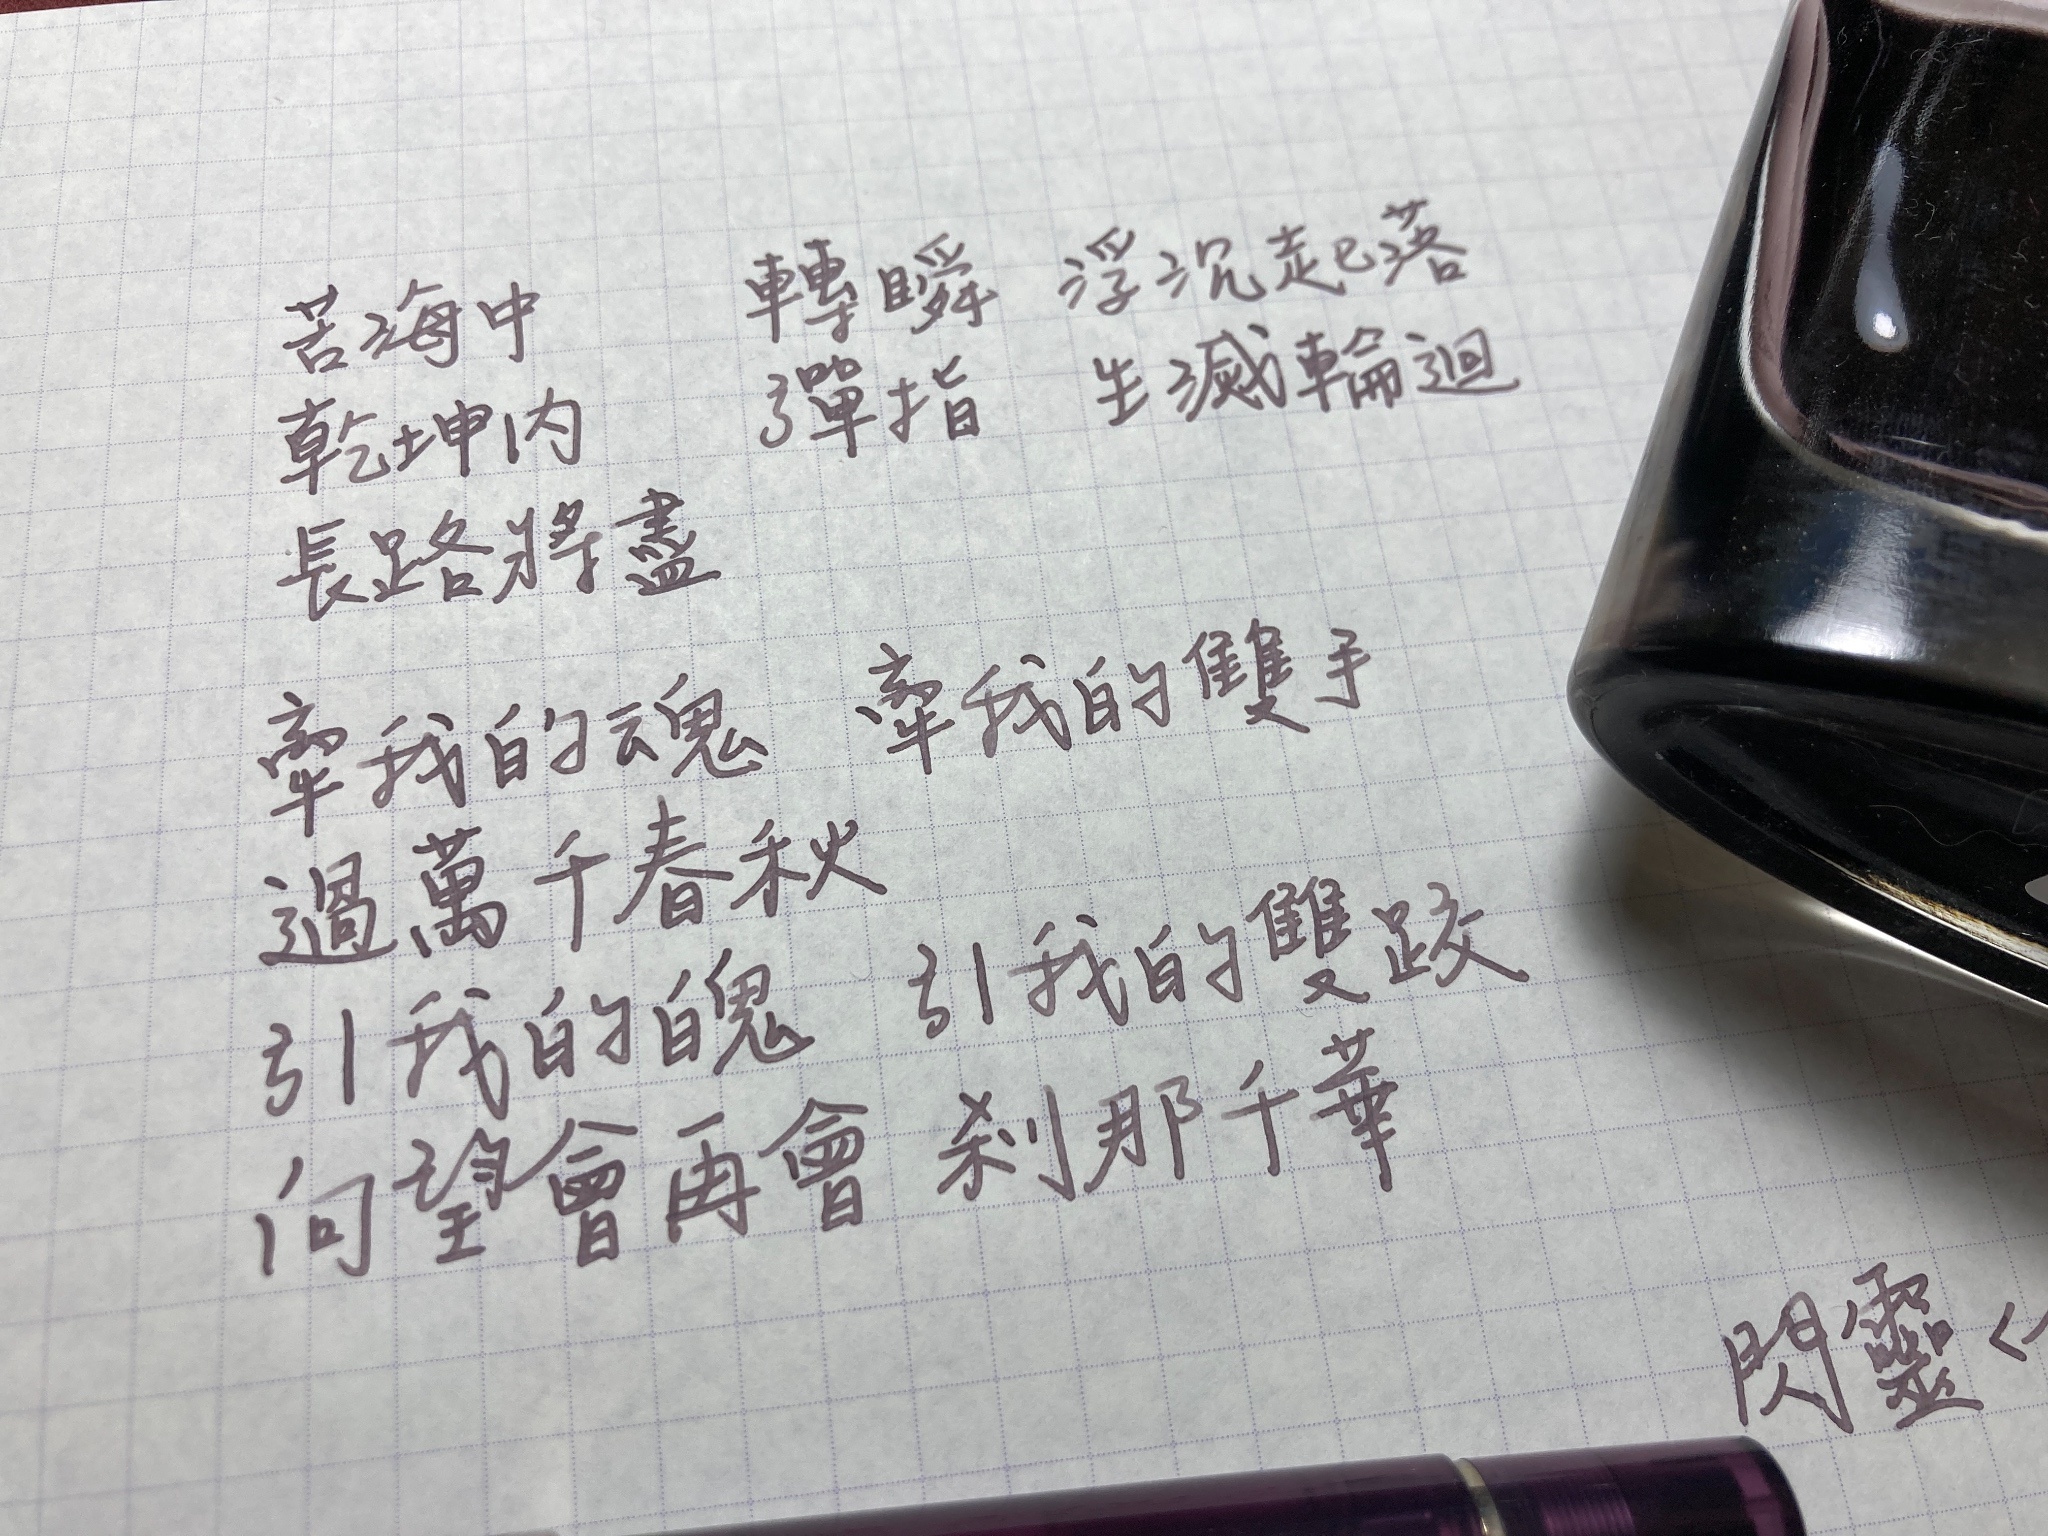 苦海中 轉瞬 浮沉起落
乾坤內 彈指 生滅輪迴
長路將盡
牽我的魂 牽我的雙手
過萬千春秋
引我的魄 引我的雙跤
向望會再會 剎那千華
閃靈<